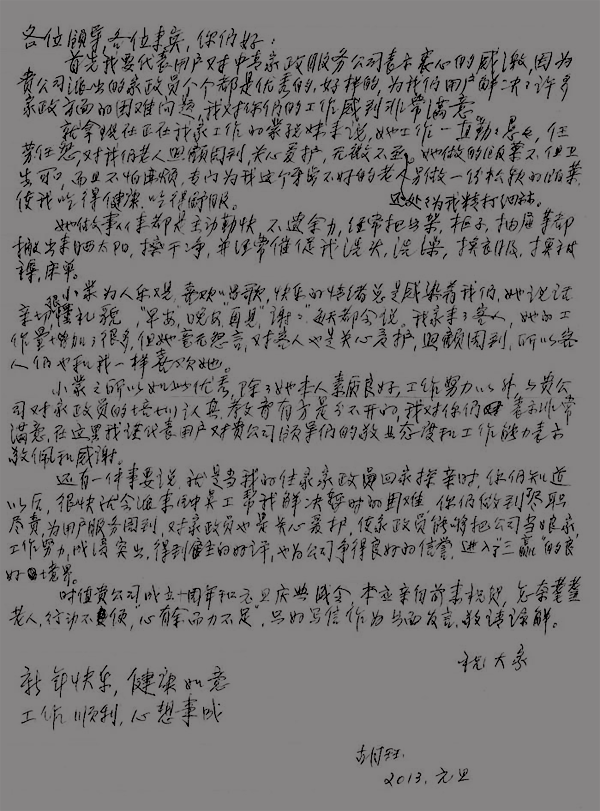 各位领导,各位来宾,你们好:
首先我要代表用户对中青家政服务公司表示衷心的感激,因为
贵公司派出的家政员个个都是优秀的,好样的,为我们用户解决了许多
家政方面的困难问题,我对你们的工作感到非常满意。
就拿现在正在我家工作的 妹来说,她工作一直勤勤恳恳,任
劳任怨,对我们老人照顾周到,关心爱护,无微不至,她做的饭菜不但卫
生可口,而且不怕麻烦,专门为我这个牙齿不好的老人另做一份松软的饭菜,
使我吃得健康,吃得舒服。 还处处为我精打细算。
她做事从来都是主动勤快,不遗余力,经常把出柜子,抽屉等都
搬出来晒太阳,擦干净,并经常催促我洗头,洗澡,换衣服,换被
褥,床单。
小 为人乐观,喜欢唱歌,快乐的情绪总是感染着我们,她说话
亲切,很懂礼貌,"早安,晚安,再见",谢谢,每天都会说。我家来了客人,她的工
作量增加了很多,但她毫无怨言,对客人也是关心爱护,照顾周到,所以客
人们也和我一样喜欢她。
小 之所以如此优秀,除了她本人素质良好,工作努力以外,与贵公
司对家政员的培训认真,教育有方是分不开的,我对你们表示非常
满意,在这里我谨代表用户对贵公司领导们的敬业态度和工作能力表示
敬佩和感谢。
还有一件事要说,就是当我的住家家政员回家探亲时,你们知道
以后,很快就会派来 工帮我解决暂时的困难,你们做到尽职
尽责,为用户服务周到,对家政员也是关心爱护,使家政员能够把公司当娘家,
工作努力,成绩突出,得到雇主的好评,也为公司争得良好的信誉,进入了"三赢"的良
好境界。
时值贵公司成立十周年和元旦庆典盛会,本应亲自前来祝贺,怎奈耄耋
老人,行动不便,"心有余而力不足",只好写信作为书面发言,敬请谅解。
祝大家
新年快乐,健康如意
工作顺利,心想事成
胡珏
2013.元旦